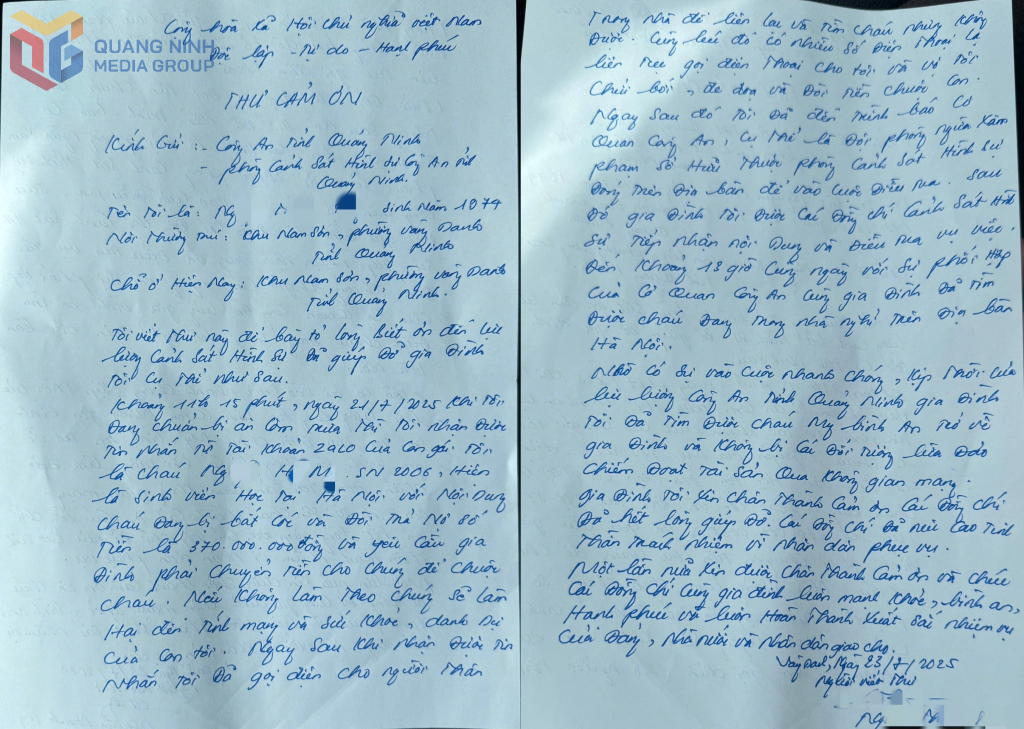 QUANG NINH
MEDIA GROUP
Cộng hòa xã Hội chủ nghĩa việt Nam
Độc lập - Tự do - Hạnh phúc
THƯ CẢM ƠN
Kính Gửi : - Công An Tỉnh Quảng Ninh
- phòng Cảnh Sát Hình sự Công An tỉnh
Quảng Ninh.
Tên Tôi là : Ng M sinh Năm 1974
Nơi Thường trú : Khu Nam Sơn, phường vàng Danh
Tỉnh Quảng Ninh
Chỗ ở Hiện Nay : Khu Nam Sơn, phường vàng Danh
Tỉnh Quảng Ninh.
Tôi viết Thư này để bày tỏ lòng Biết ơn đến lực
lượng Cảnh Sát Hình Sự Đã giúp Đỡ gia Đình
Tôi Cụ Thể Như Sau.
Khoảng 11h 15 phút, ngày 21/7/2025 Khi Tôi
Đang chuẩn bị ăn Cơm trưa Thì Tôi nhận Được
Tin nhắn Từ Tài Khoản Zalo Của Con gái Tôi
là cháu Ng H M. SN 2006, Hiện
là sinh viên Học Tại Hà Nội với Nội Dung
cháu Đang bị bắt Cóc và Đòi Trả Nợ Số
Tiền là 370.000.000đồng và yêu cầu gia
Đình phải chuyển Tiền cho chúng để chuộc
cháu. Nếu Không Làm Theo chúng sẽ làm
Hại đến Tính mạng và sức Khỏe, danh Dự
Của Con tôi. Ngay sau Khi nhận Được Tin
Nhắn Tôi Đã gọi điện cho người Thân
Trong nhà để liên lạc và Tìm cháu nhưng Không
Được. Cùng lúc đó có nhiều số Điện Thoại Lạ
liên Tục gọi điện Thoại cho tôi và vợ tôi
chửi bới, đe dọa và Đòi Tiền chuộc Con.
Ngay sau đó Tôi Đã đến Trình báo Cơ
Quan Công An, Cụ Thể là Đội phòng ngừa Xâm
phạm sở Hữu Thuộc phòng Cảnh Sát Hình Sự
Đóng Trên Địa bàn để vào Cuộc Điều tra. Sau
Đó gia Đình Tôi Được Các Đồng chí Cảnh Sát Hình
Sự Tiếp Nhận nội Dung và Điều tra vụ việc.
Đến Khoảng 18 giờ Cùng ngày với Sự phối Hợp
Của Cơ Quan Công An Cùng gia Đình Đã Tìm
Được cháu Đang Trong nhà nghỉ Trên Địa bàn
Hà Nội.
Nhờ có Sự vào Cuộc Nhanh chóng, Kịp Thời của
lực lượng Công An Tỉnh Quảng Ninh gia Đình
Tôi Đã Tìm Được cháu My bình An Trở về
gia Đình và Không bị Các Đối Tượng lừa Đảo
Chiếm Đoạt Tài Sản Qua Không gian mạng.
gia Đình Tôi Xin Chân Thành Cảm ơn Các Đồng chí
Đã hết lòng giúp Đỡ. Các Đồng chí Đã nêu Cao Tinh
Thần Trách nhiệm vì nhân dân phục vụ.
Một lần nữa xin được chân Thành Cảm ơn và chúc
Các Đồng Chí Cùng gia đình luôn mạnh Khỏe, bình an,
Hạnh phúc và luôn Hoàn Thành Xuất Sắc nhiệm vụ
Của Đảng, Nhà nước và Nhân dân giao cho.
Vàng Danh, Ngày 23/7/2025
Người viết Thư
Ng N